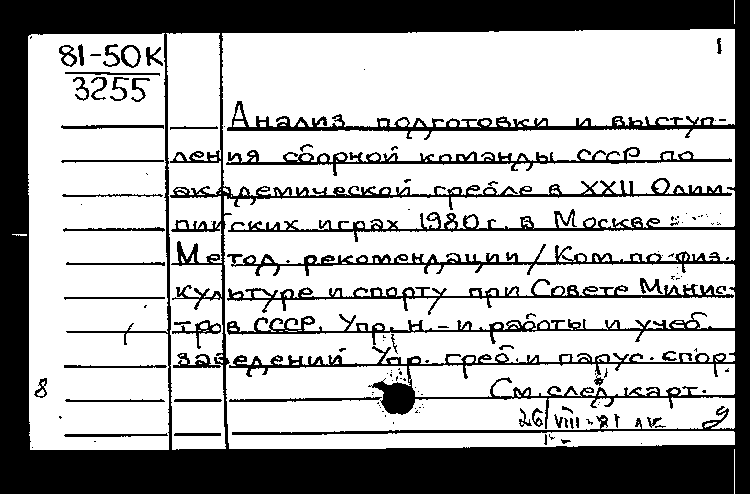 81-50К
3255
1
Анализ подготовки и выступ-
ления сборной команды СССР по
академической гребле в XXII Олим-
пийских играх 1980 г. в Москве:
Метод. рекомендации / Ком. по физ.
культуре и спорту при Совете Минис-
тров СССР, Упр. н.-и. работы и учеб.
заведений Упр. греб. и парус. спор
8
См. след. карт.
26/VIII-81